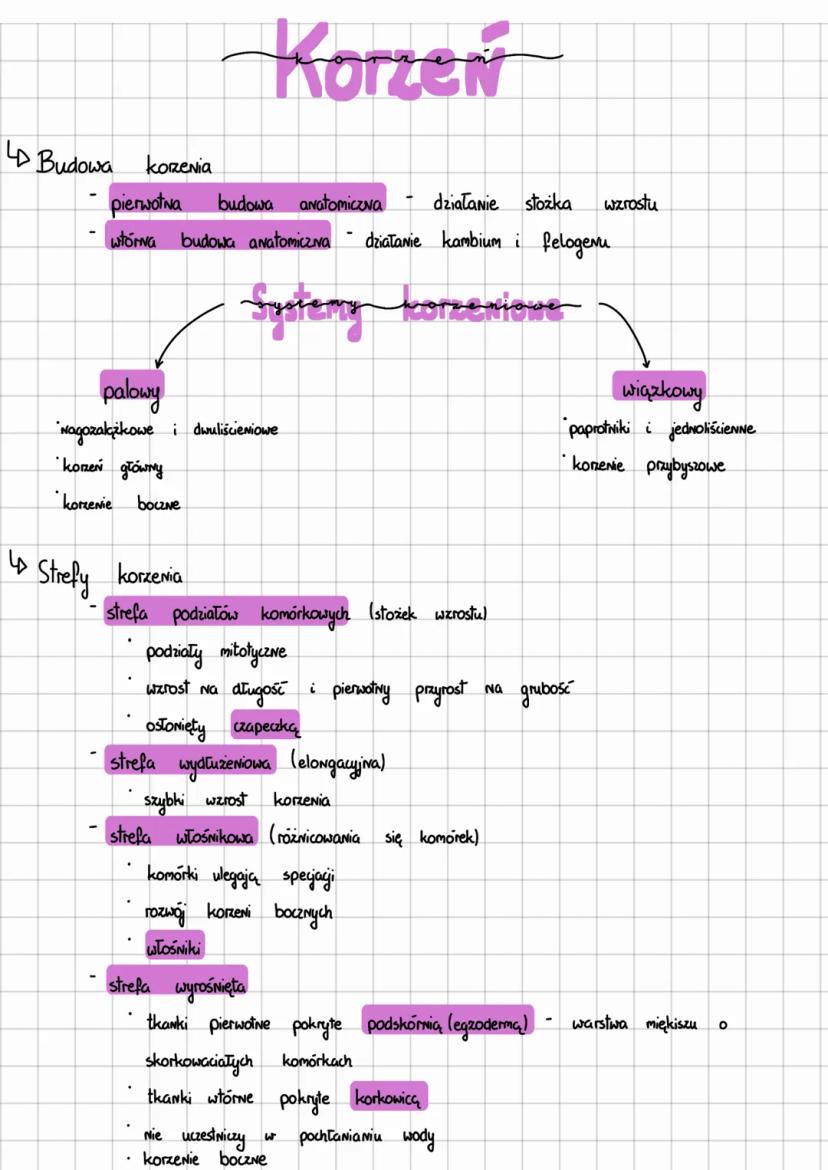 Korzeń
korzeń
Budowa korzenia
- pierwotna budowa anatomiczna - działanie stożka wzrostu
- wtórna budowa anatomiczna - działanie kambium i felogenu
Systemy korzeniowe
palowy
wiązkowy
·nagozalążkowe i dwuliścieniowe
·paprotniki i jednoliścienne
·korzeń główny
·korzenie przybyszowe
·korzenie boczne
Strefy korzenia
- strefa podziałów komórkowych (stożek wzrostu)
· podziały mitotyczne
· wzrost na długość i pierwotny przyrost na grubość
· osłonięty czapeczką
- strefa wydłużeniowa (elongacyjna)
· szybki wzrost korzenia
- strefa włośnikowa (różnicowania się komórek)
· komórki ulegają specjacji
· rozwój korzeni bocznych
· włośniki
- strefa wyrośnięta
· tkanki pierwotne pokryte podskórnią (egzodermą) - warstwa miękiszu o
skorkowaciałych komórkach
· tkanki wtórne pokryte korkowicą
· nie uczestniczy w pochłanianiu wody
· korzenie boczne